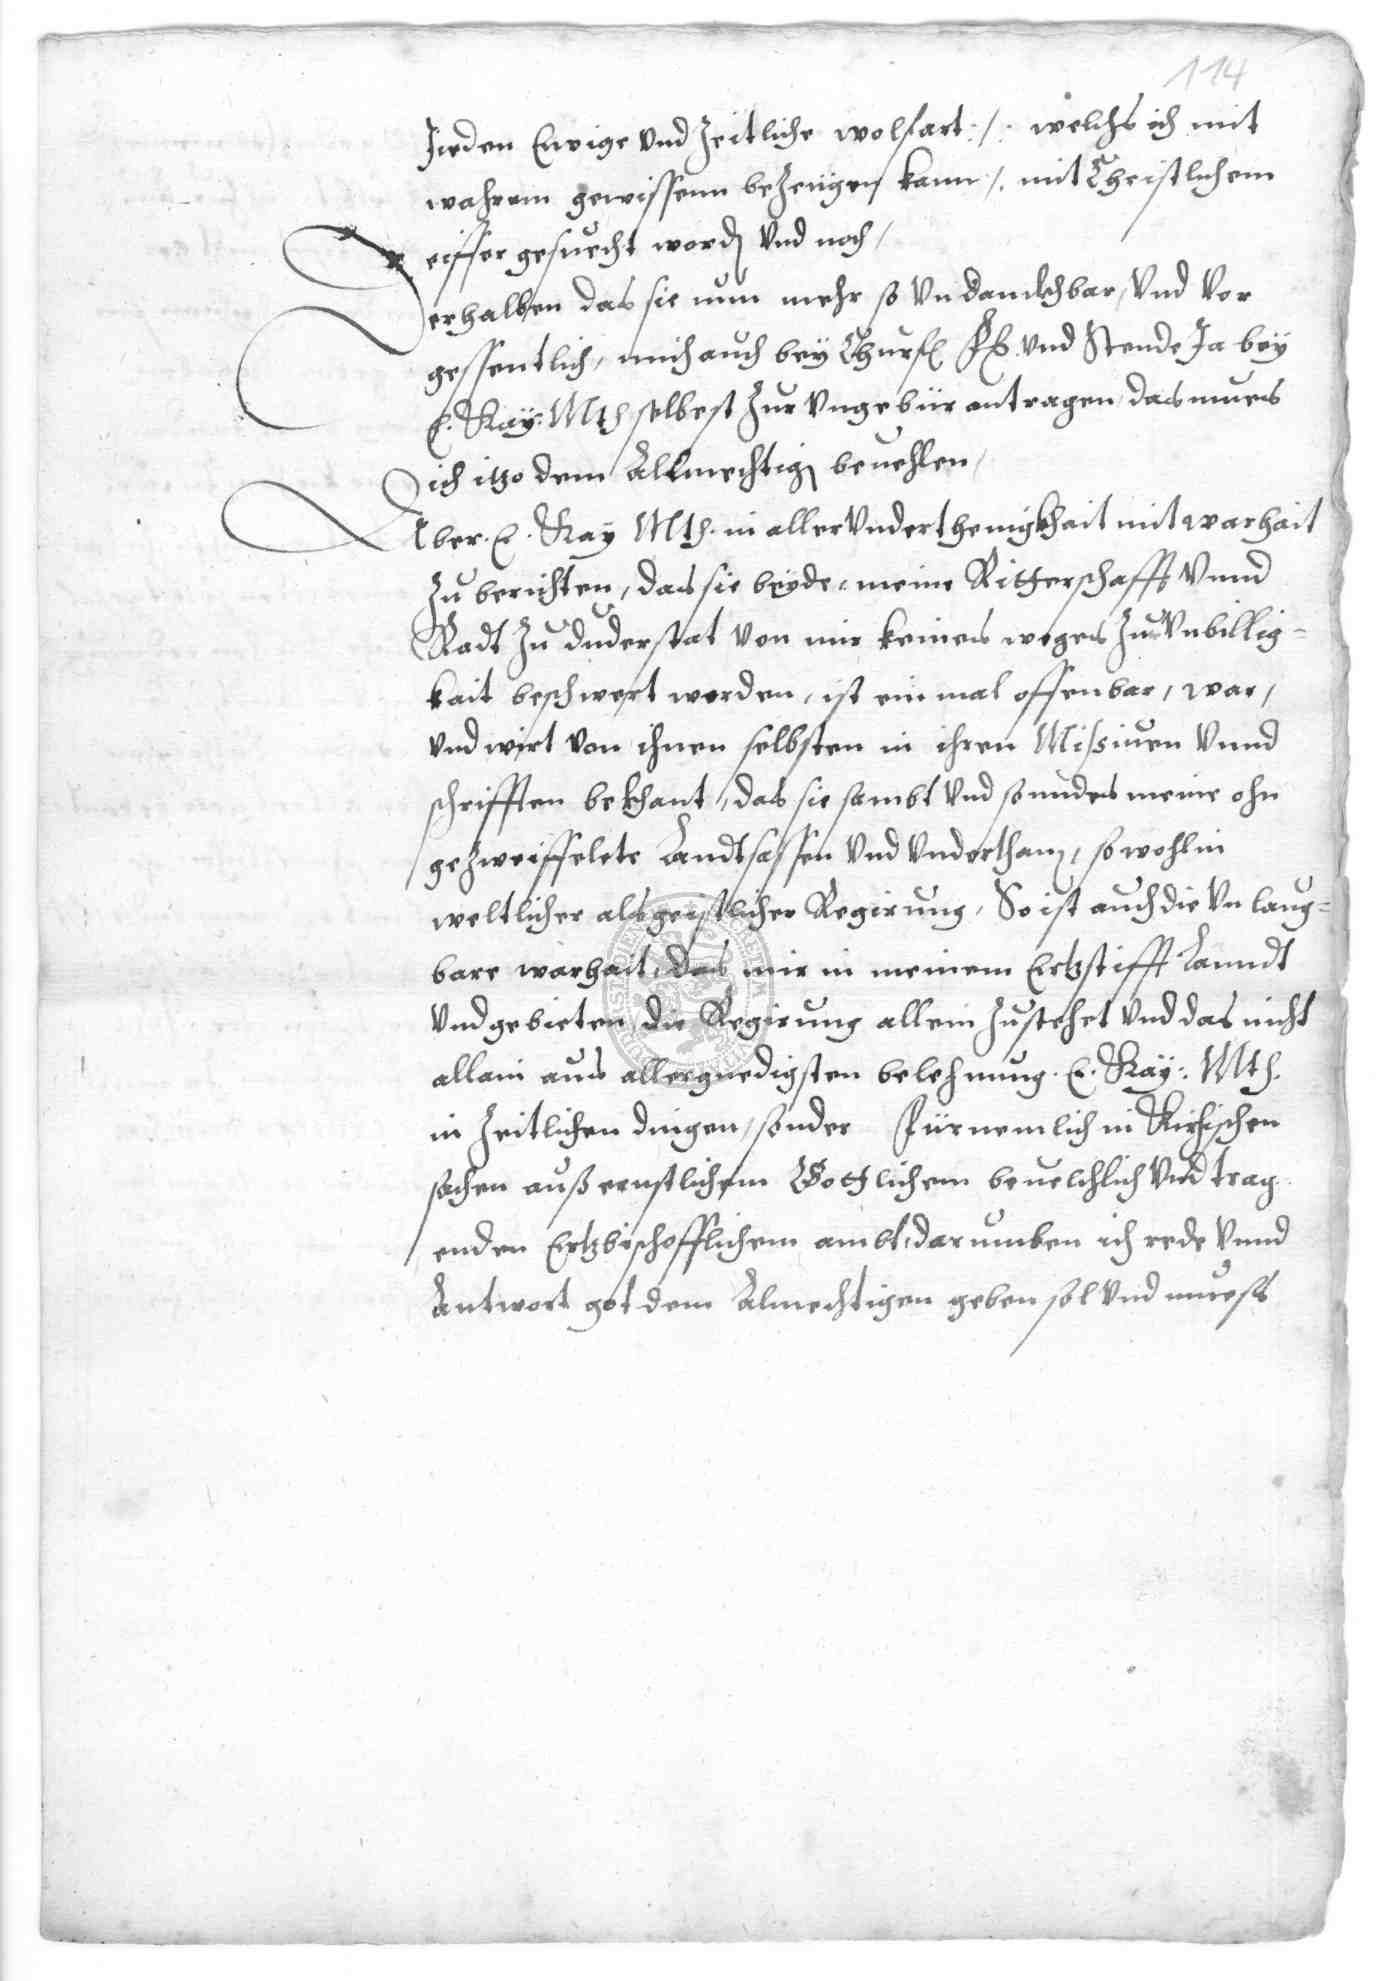 114
Jeden Ewige vnd Zeitliche wolfart :/: welchs ich mit
wahrem gewissenn beZeugen kann :/. mit Christlichem
eiffer gesucht word vnd noch /
Derhalben das sie nun mehr so vndanckhbar, vnd vor
gessentlich, mich auch bey Churf. Fl. vnd Stende Ja bey
E. Kay: Mth selbest Zur vngebür antragen das mues
ich itzo dem Allmechtig beuehlen,
Aber. E. Kay Mth. in aller vnderthenigkhait mit warhait
Zu berichten, das sie beyde, meine Ritterschafft vnnd
Radt Zu duderstat von mir keines weges Zur vnbillig=
kait beschwert werden, ist ein mal offenbar, war,
vnd wirt von ihnen selbsten in ihren Missiuen vnnd
schrifften bekhant, das sie sambt vnd sonnders meine ohn
geZweiffelete Landtsassen vnd vnderthan, so wohl in
weltlicher als geistlicher Regirung, So ist auch die vnlaug=
bare warhait, das mir in meinem Ertzstifft Lanndt
vnd gebieten die Regirung allein Zustehet vnd das nicht
allain aus allergnedigsten belehnung. E. Kay: Mth.
in Zeitlichen dingen, sonder Fürnemlich in Kirchischen
sachen auß ernstlichem Gottlichem beuelchlich vnd trag
enden Ertzbischofflichem ambt, darumben ich rede vnnd
Antwort got dem Almechtigen geben sol vnd muess